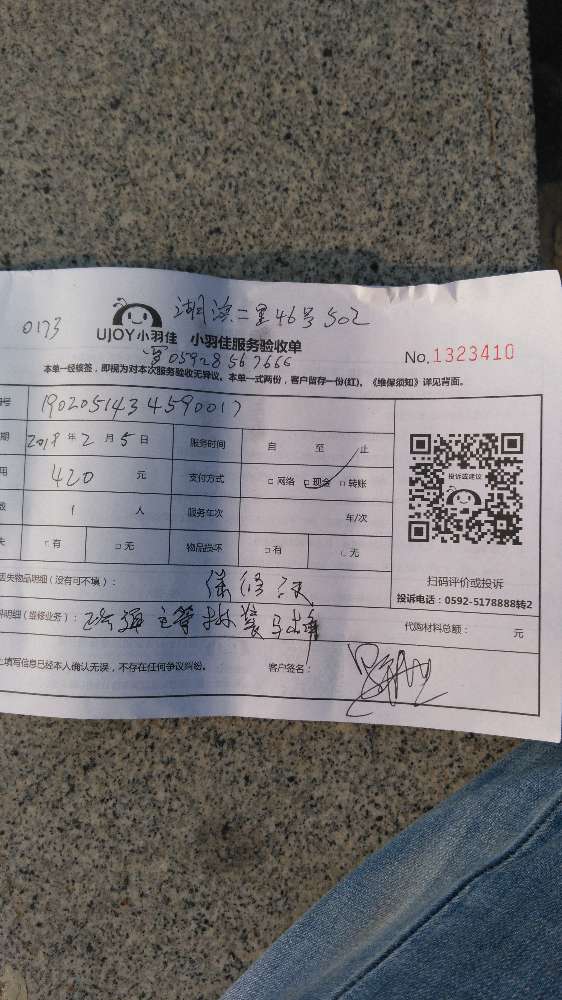 湖滨二里46号502
0173
UJOY小羽佳 小羽佳服务验收单
05928567666
No.1323410
本单一经核签，即视为对本次服务验收无异议。本单一式两份，客户留存一份(红)。《维保须知》详见背面。
号 1902051434590017
期 2018年2月5日 服务时间 自 至 止
用 420 元 支付方式 □网络 □现金 □转账
数 1 人 服务年次 车/次
投诉或建议
失 □有 □无 物品损坏 □有 □无
扫码评价或投诉
投诉电话：0592-5178888转2
丢失物品明细（没有可不填）： 保修 天
明细（维修业务）： 代购材料总额： 元
上填写信息已经本人确认无误，不存在任何争议纠纷。 客户签名：